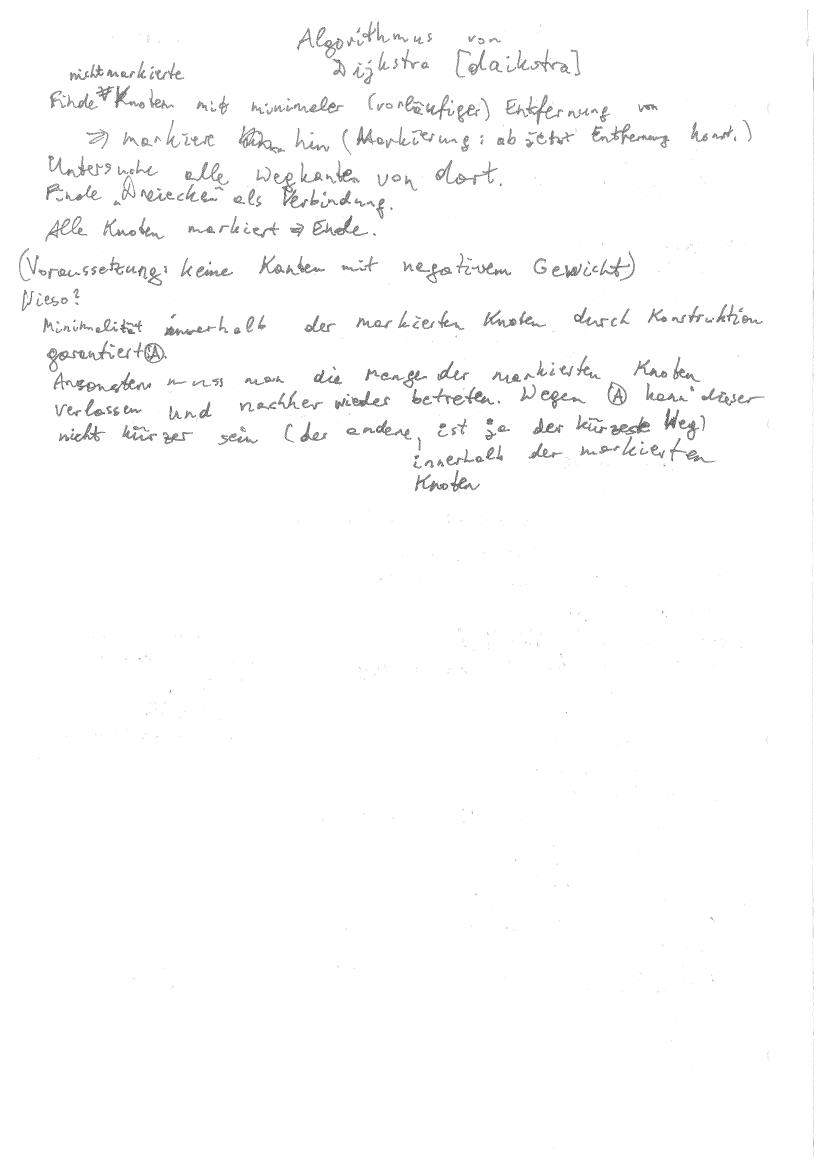 Algorithmus von
Dijkstra [daikstra]
nichtmarkierte
Finde Knoten mit minimaler (vorläufiger) Entfernung von
⇒ markiere hin (Markierung: ab jetzt Entfernung konst.)
Untersuche alle Wegkanten von dort.
Finde "Dreiecken" als Verbindung.
Alle Knoten markiert ⇒ Ende.
(Voraussetzung: keine Kanten mit negativem Gewicht)
Wieso?
Minimalität innerhalb der markierten Knoten durch Konstruktion
garantiert Ⓐ.
Ansonsten muss man die Menge der markierten Knoten
verlassen und nachher wieder betreten. Wegen Ⓐ kann dieser
nicht kürzer sein (der andere, ist ja der kürzeste Weg)
innerhalb der markierten
Knoten